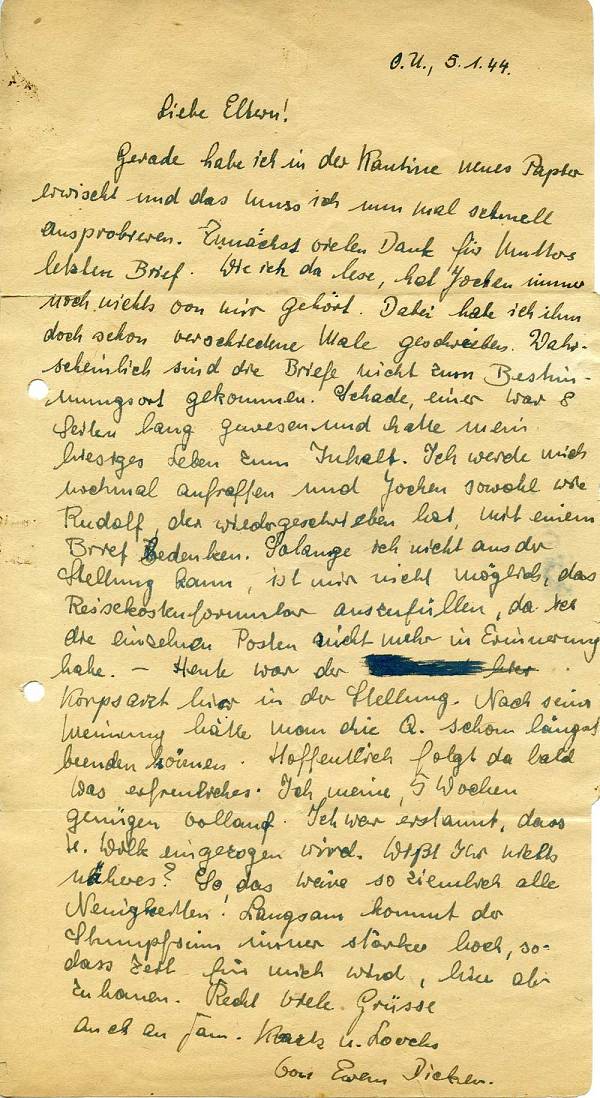 O.U., 5.1.44.
Liebe Eltern!
Gerade habe ich in der Kantine neues Papier
erwischt und das muss ich nun mal schnell
ausprobieren. Zunächst vielen Dank für Mutters
letzten Brief. Wie ich da lese, hat Jochen immer
noch nichts von mir gehört. Dabei habe ich ihm
doch schon verschiedene Male geschrieben. Wahr-
scheinlich sind die Briefe nicht zum Bestim-
mungsort gekommen. Schade, einer war 8
Seiten lang gewesen und hatte mein
hiesiges Leben zum Inhalt. Ich werde mich
nochmal aufraffen und Jochen sowohl wie
Rudolf, der wiedergeschrieben hat, mit einem
Brief bedenken. Solange ich nicht aus der
Stellung kann, ist mir nicht möglich, das
Reisekostenformular auszufüllen, da ich
die einzelnen Posten nicht mehr in Erinnerung
habe. – Heute war der hier
Korpsarzt hier in der Stellung. Nach seiner
Meinung hätte man die Q. schon längst
beenden können. Hoffentlich folgt da bald
was erfreuliches. Ich meine, 5 Wochen
genügen vollauf. Ich war erstaunt, dass
H. Wilk eingezogen wird. Wißt Ihr nichts
näheres? So das wäre so ziemlich alle
Neuigkeiten! Langsam kommt der
Stumpfsinn immer stärker hoch, so-
dass Zeit für mich wird, hier ab-
zuhauen. Recht viele Grüsse
auch an Fam. u.
von Euern Dicken.